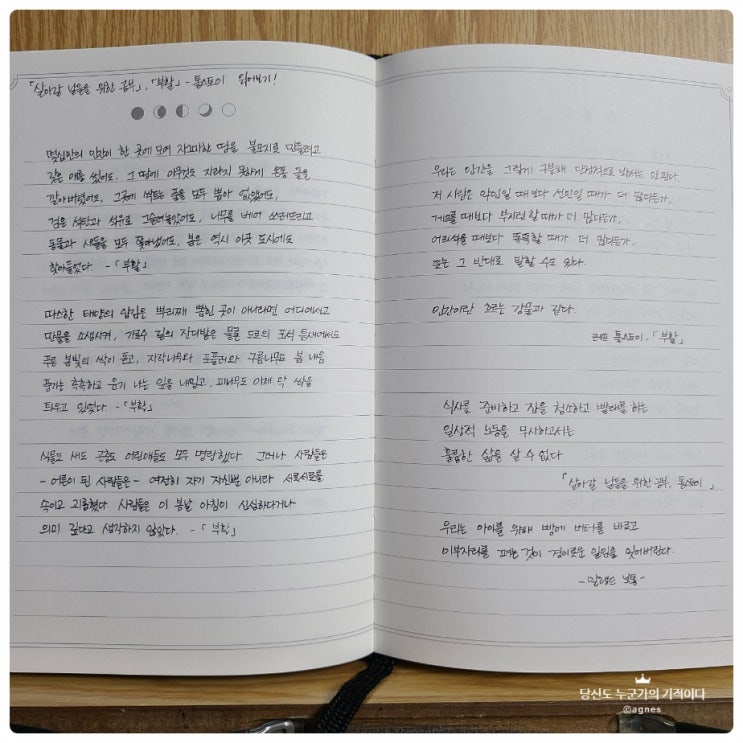 「살아갈 날들을 위한 공부」, 「부활」 - 톨스토이 읽어보기!
몇십만의 인간이 한 곳에 모여 자그마한 땅을 불모지로 만들려고
갖은 애를 썼어도, 그 땅에 아무것도 자라지 못하게 온통 돌을
깔아버렸어도, 그곳에 싹트는 풀을 모두 뽑아 없앴어도,
검은 석탄과 석유로 그슬려놓았어도, 나무를 베어 쓰러뜨리고
동물과 새들을 모두 쫓아냈어도, 봄은 역시 이곳 도시에도
찾아들었다. - 「부활」
따스한 태양의 입김은 뿌리째 뽑힌 곳이 아니라면 어디에서고
만물을 소생시켜, 가로수 길의 잔디밭은 물론 도로의 포석 틈새에서도
푸른 봄빛의 싹이 돋고, 자작나무와 포플러와 구름나무도 봄 내음
풍기는 촉촉하고 윤기 나는 잎을 내밀고, 피나무도 이제 막 싹을
틔우고 있었다. - 「부활」
식물도 새도 곤충도 어린애들도 모두 명랑했다. 그러나 사람들은
- 어른이 된 사람들은 - 여전히 자기 자신뿐 아니라 서로서로를
속이고 괴롭혔다. 사람들은 이 봄날 아침이 신성하다거나
의미 깊다고 생각하지 않았다. - 「부활」
우리는 인간을 그렇게 구분해 단정적으로 봐서는 안 된다.
저 사람은 악인일 때보다 선인일 때가 더 많다든가,
게으를 때보다 부지런할 때가 더 많다든가,
어리석을 때보다 똑똑할 때가 더 많다든가,
또는 그 반대로 말할 수도 있다.
인간이란 흐르는 강물과 같다.
레프 톨스토이, 「부활」
식사를 준비하고 집을 청소하고 빨래를 하는
일상적 노동을 무시하고서는
훌륭한 삶을 살 수 없다.
「살아갈 날들을 위한 공부, 톨스토이」
우리는 아이를 위해 빵에 버터를 바르고
이부자리를 펴는 것이 경이로운 일임을 잊어버린다.
- 알랭드 보통 -
당신도 누군가의 기적이다
©agnes